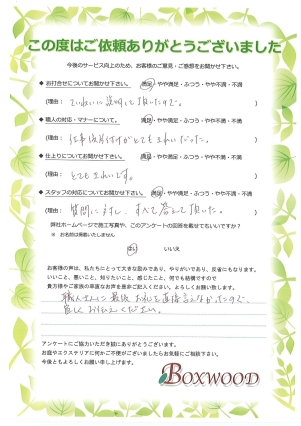 この度はご依頼ありがとうございました
今後のサービス向上のため、お客様のご意見・ご感想をお聞かせ下さい。
◆お打合せについてお聞かせ下さい。 満足・やや満足・ふつう・やや不満・不満
(理由： ていねいに説明して頂いたので。 )
◆職人の対応・マナーについて。 満足・やや満足・ふつう・やや不満・不満
(理由： 仕事後片付けがとてもきれいだった。 )
◆仕上りについてお聞かせ下さい。 満足・やや満足・ふつう・やや不満・不満
(理由： とてもきれいです。 )
◆スタッフの対応についてお聞かせ下さい。 満足・やや満足・ふつう・やや不満・不満
(理由： 質問に対し、すべて答えて頂いた。 )
弊社ホームページで施工写真や、このアンケートの回答を載せてもいいですか？
※ お名前は掲載いたしません はい ・ いいえ
お客様の声は、私たちにとって大きな励みであり、やりがいであり、反省にもなります。
いいこと、悪いこと、知りたいこと、感じたこと、何でも結構ですので
貴方様やご家族の率直なお声を是非ご記入ください。よろしくお願い致します。
職人さんに最後お礼を直接言えなかったので
宜しくお伝えください。
アンケートにご協力いただき誠にありがとうございます。
お庭やエクステリアに何かご不便がございましたらお気軽にご相談下さい。
今後ともよろしくお願い申し上げます。
BOXWOOD